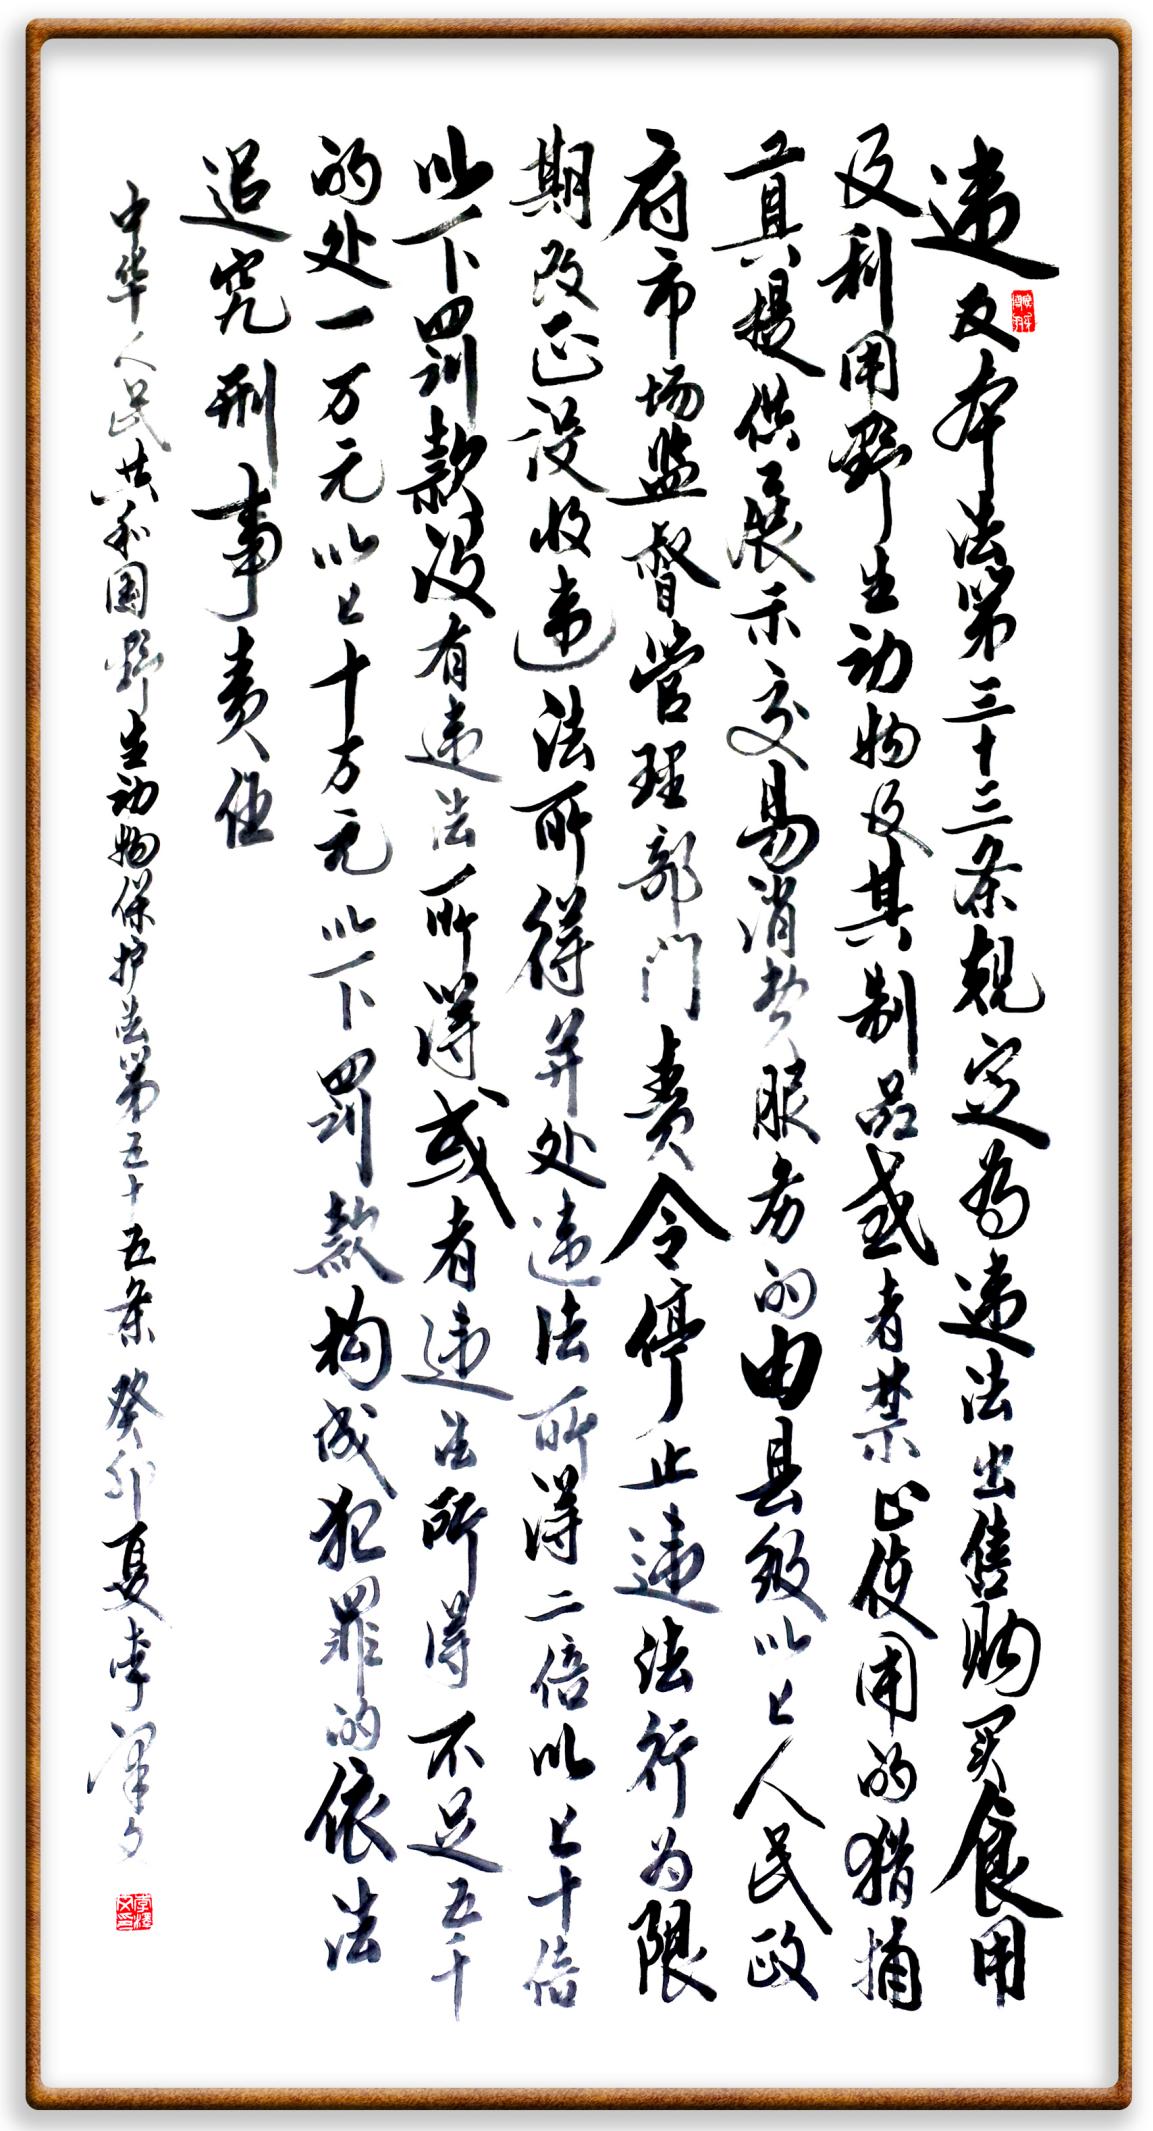 违反本法第三十三条规定为违法出售购买食用
及利用野生动物及其制品或者禁止使用的猎捕
工具提供展示交易消费服务的由县级以上人民政
府市场监督管理部门责令停止违法行为限
期改正没收违法所得并处违法所得二倍以上十倍
以下罚款没有违法所得或者违法所得不足五千
的处一万元以上十万元以下罚款构成犯罪的依法
追究刑事责任
中华人民共和国野生动物保护法第五十五条 癸卯夏李泽文
李泽文印